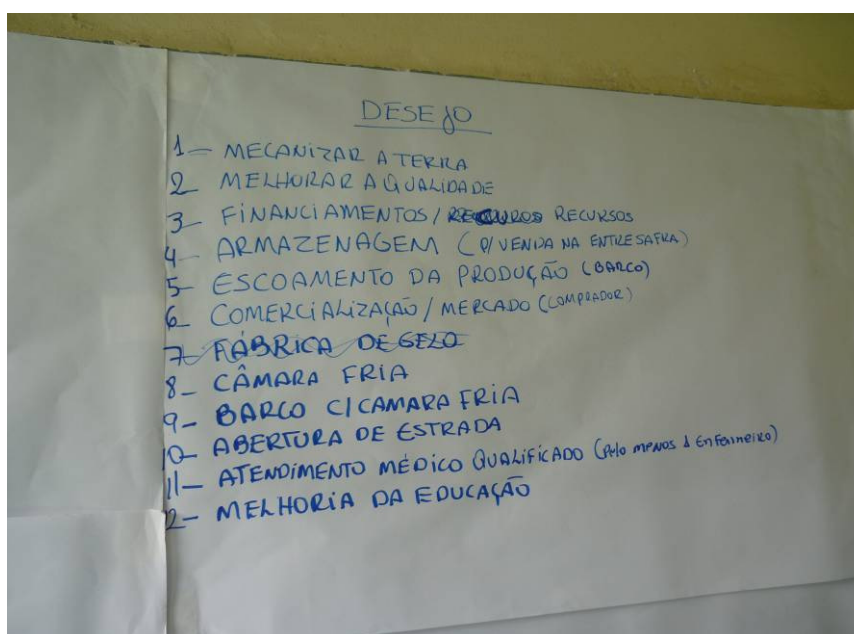 DESEJO
1- MECANIZAR A TERRA
2 MELHORAR A QUALIDADE
3- FINANCIAMENTOS/ RECURSOS
4- ARMAZENAGEM (P/VENDA NA ENTRESAFRA)
5- ESCOAMENTO DA PRODUÇÃO (BARCO)
6- COMERCIALIZAÇÃO/MERCADO (COMPRADOR)
7- FÁBRICA DE GELO
8- CÂMARA FRIA
9- BARCO C/CAMARA FRIA
10- ABERTURA DE ESTRADA
11- ATENDIMENTO MÉDICO QUALIFICADO (Pelo menos 1 Enfermeiro)
12- MELHORIA DA EDUCAÇÃO